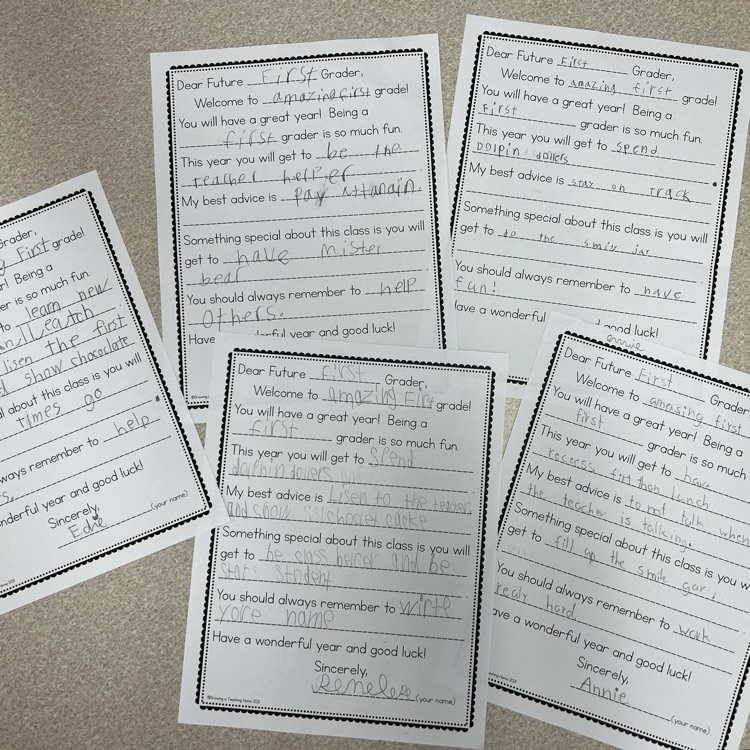 Dear Future First Grader,
Welcome to amazing first grade!
You will have a great year! Being a
first grader is so much fun.
This year you will get to be the
teacher helper
My best advice is Pay Attanain.
Something special about this class is you will
get to have Mister
bear
You should always remember to help
others.
Have wonderful year and good luck!
Dear Future First Grader,
Welcome to amazing first grade!
You will have a great year! Being a
First grader is so much fun.
This year you will get to spend
Dolpin dollers
My best advice is stay on track
Something special about this class is you will
get to do the smily jar
You should always remember to have
fun!
Have a wonderful good luck!
annie
Grader,
First grade!
Being a
er is so much fun.
to learn new
and Leatch
lisen the first
show chocolate
about this class is you will
times go
always remember to help
s.
wonderful year and good luck!
Sincerely,
Edie
(your name)
Dear Future First Grader,
Welcome to amazing First grade!
You will have a great year! Being a
first grader is so much fun.
This year you will get to Spend
dolphin dollers
My best advice is Lisen to the teacher
and show
Something special about this class is you will
get to be class helper and be
star student
You should always remember to wirte
yore name
Have a wonderful year and good luck!
Sincerely,
(your name)
©Growing a Teaching Home 2021
Dear Future First Grader
Welcome to amasing first
You will have a great year! Being a
first grader is so much
This year you will get to have
recess firt than lunch
My best advice is to not talk when
the teacher is talking.
Something special about this class is you w
get to fill up the smile gar!
You should always remember to work
realy hard
ave a wonderful year and good luck!
Sincerely,
Annie
(your name)